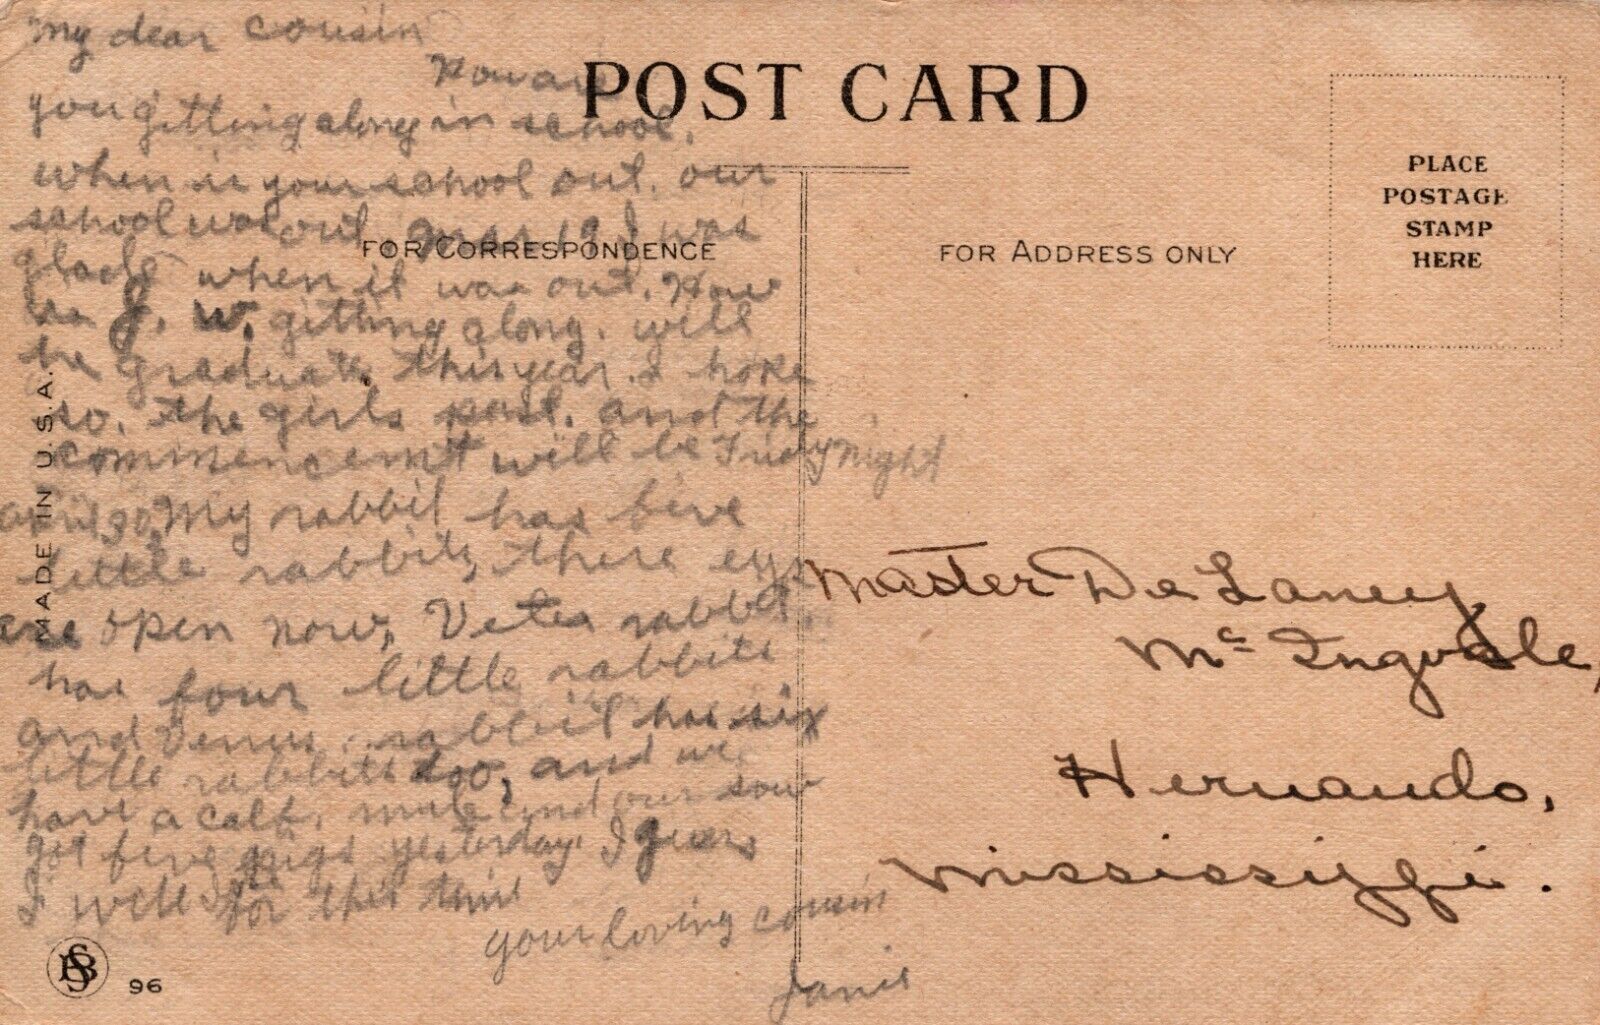 My dear cousin
How are
you gitting along in school.
when is your school out. our
school was out 19 I was
glade when it was out. How
is J. W. gitting along. will
he graduate this year. I hope
so. the girls past. and the
commencemt will be Friday night
april 30, My rabbit has five
little rabbits, there eys
are open now, Vetes rabbit
has four little rabbits
and Venus rabbit has six
little rabbits too, and we
have a calf. mule and our sow
got five pigs yesterday. I guess
I will for this time
your loving cousin
Janie
POST CARD
FOR CORRESPONDENCE
FOR ADDRESS ONLY
PLACE
POSTAGE
STAMP
HERE
Master De Laney
Mc Ingvale,
Hernando,
Mississippi.
MADE IN U.S.A.
96